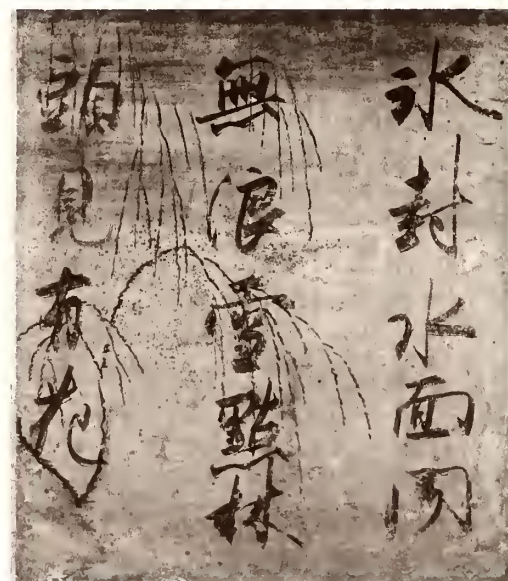 氷封水面聞
無浪雪點林
頭見有花